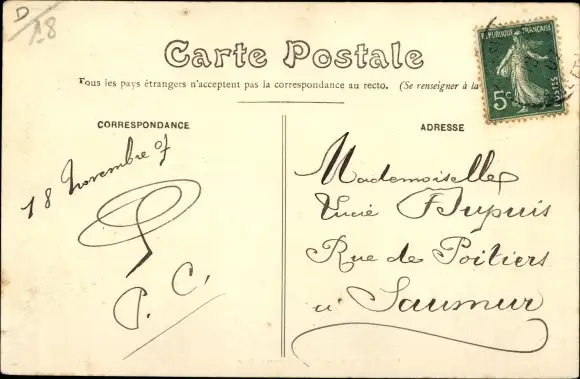 D
18
Carte Postale
Tous les pays étrangers n'acceptent pas la correspondance au recto. (Se renseigner à la
RÉPUBLIQUE FRANÇAISE
5c
POSTES
CORRESPONDANCE
ADRESSE
18 Novembre 07
P. C.
Mademoiselle
Lucie Dupuis
Rue de Poitiers
à Saumur